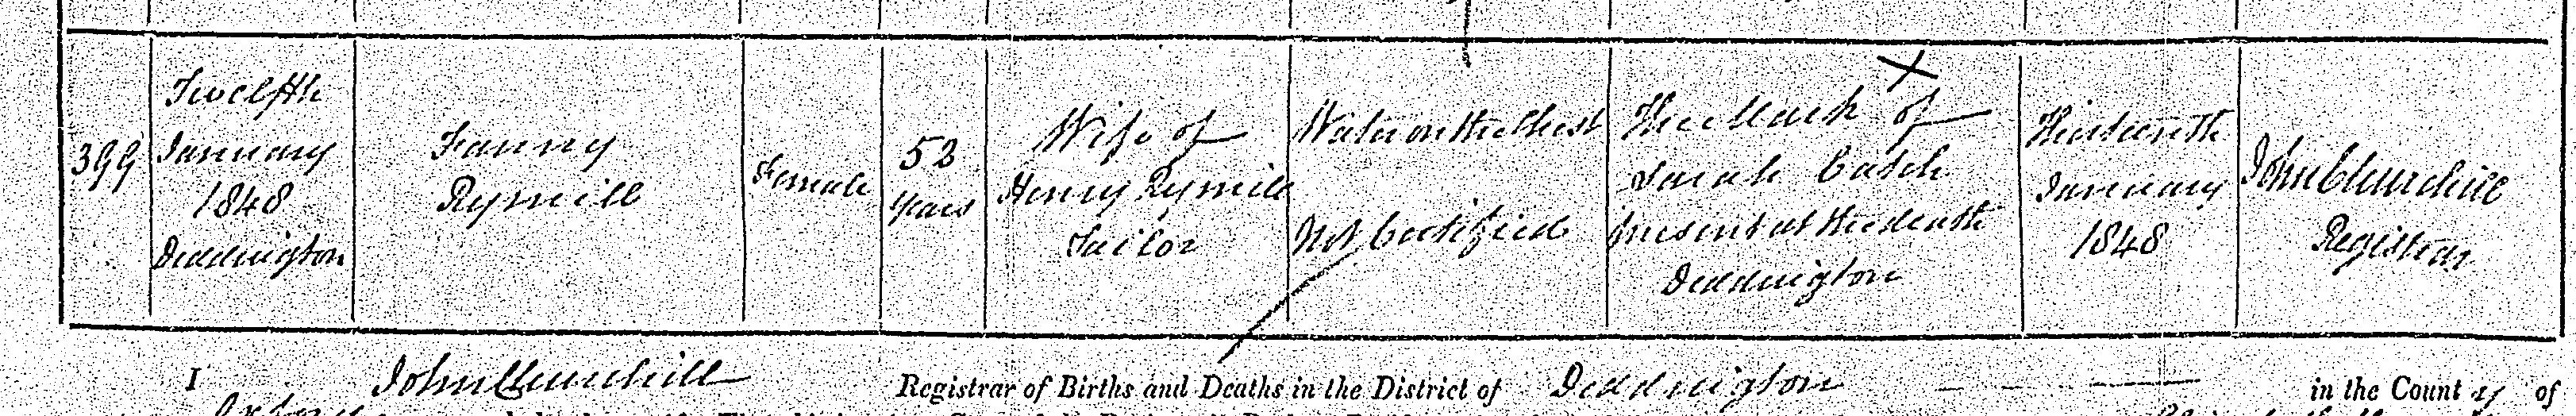 399
Twelfth
January
1848
Deddington
Fanny
Rymill
Female
52
years
Wife of
Henry Rymill
Tailor
Water on the Chest
Not Certified
X
The Mark of
Sarah Batch
present at the death
Deddington
Thirteenth
January
1848
John Churchill
Registrar
I John Churchill Registrar of Births and Deaths in the District of Deddington in the County of